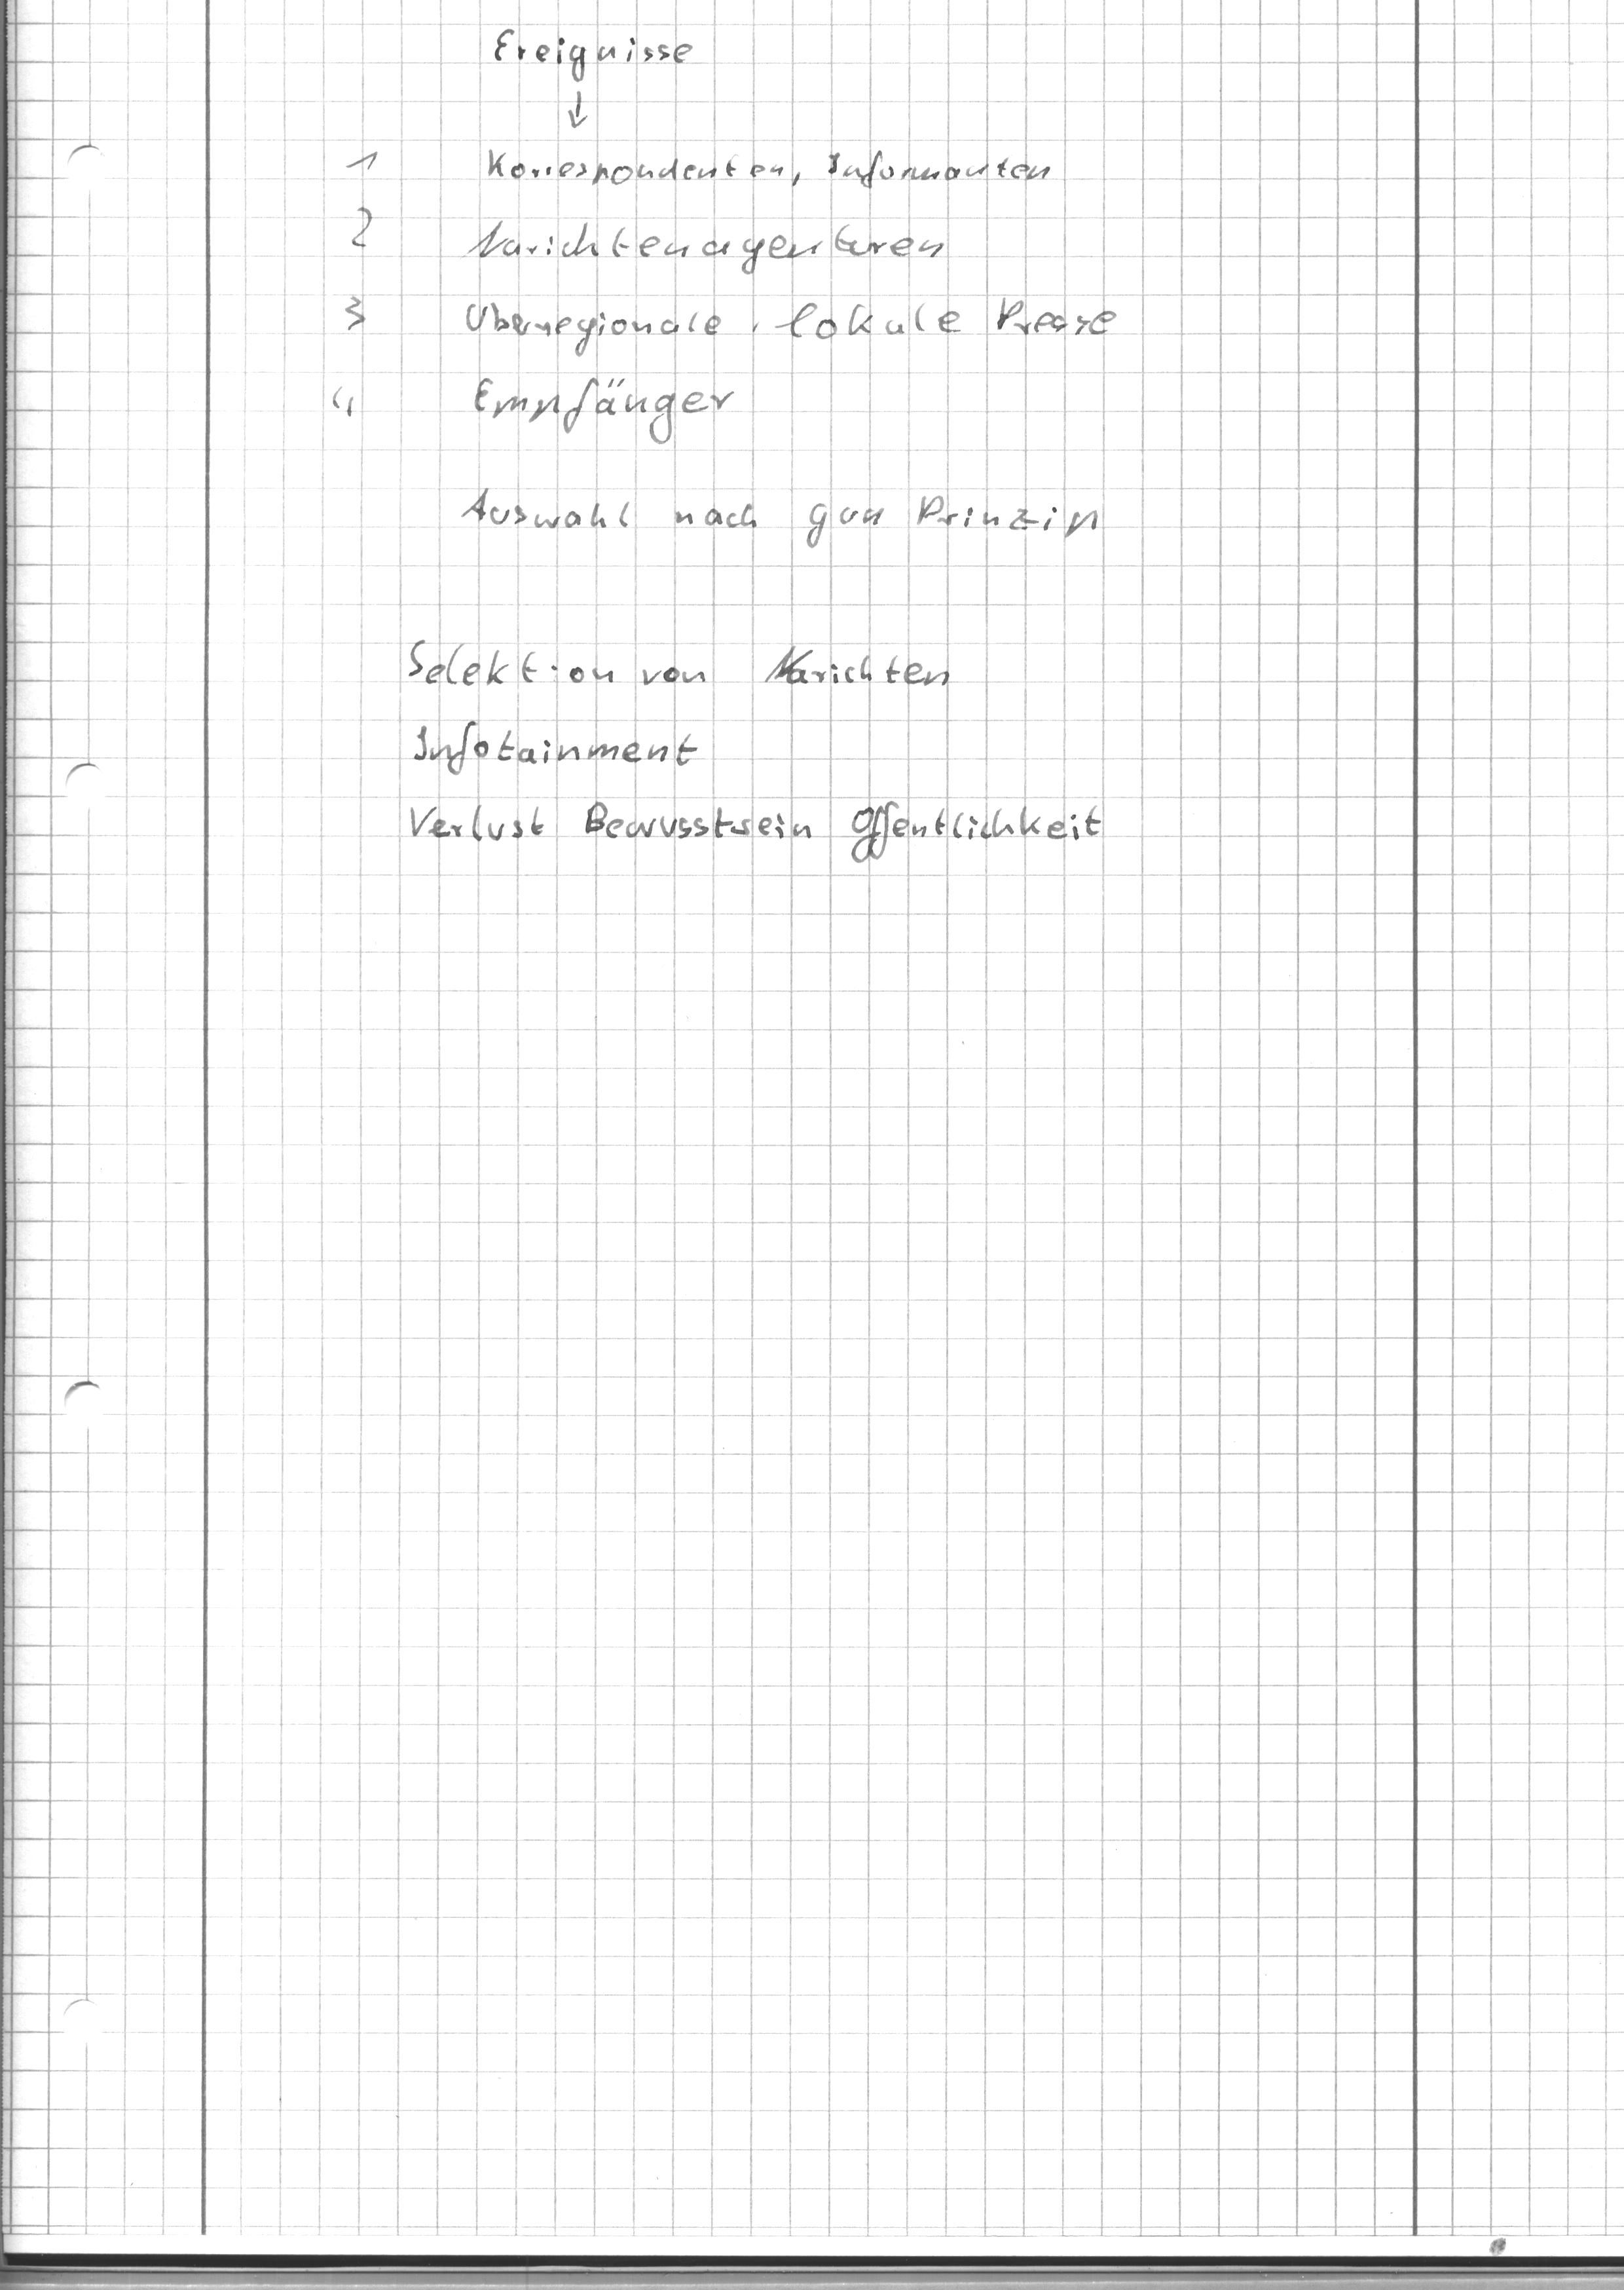 Ereignisse
↓
1 Korrespondenten, Informanten
2 Narichtenagenturen
3 Überregionale, lokale Presse
4 Empfänger
Auswahl nach gan Prinzip
Selektion von Narichten
Infotainment
Verlust Bewusstsein Öffentlichkeit